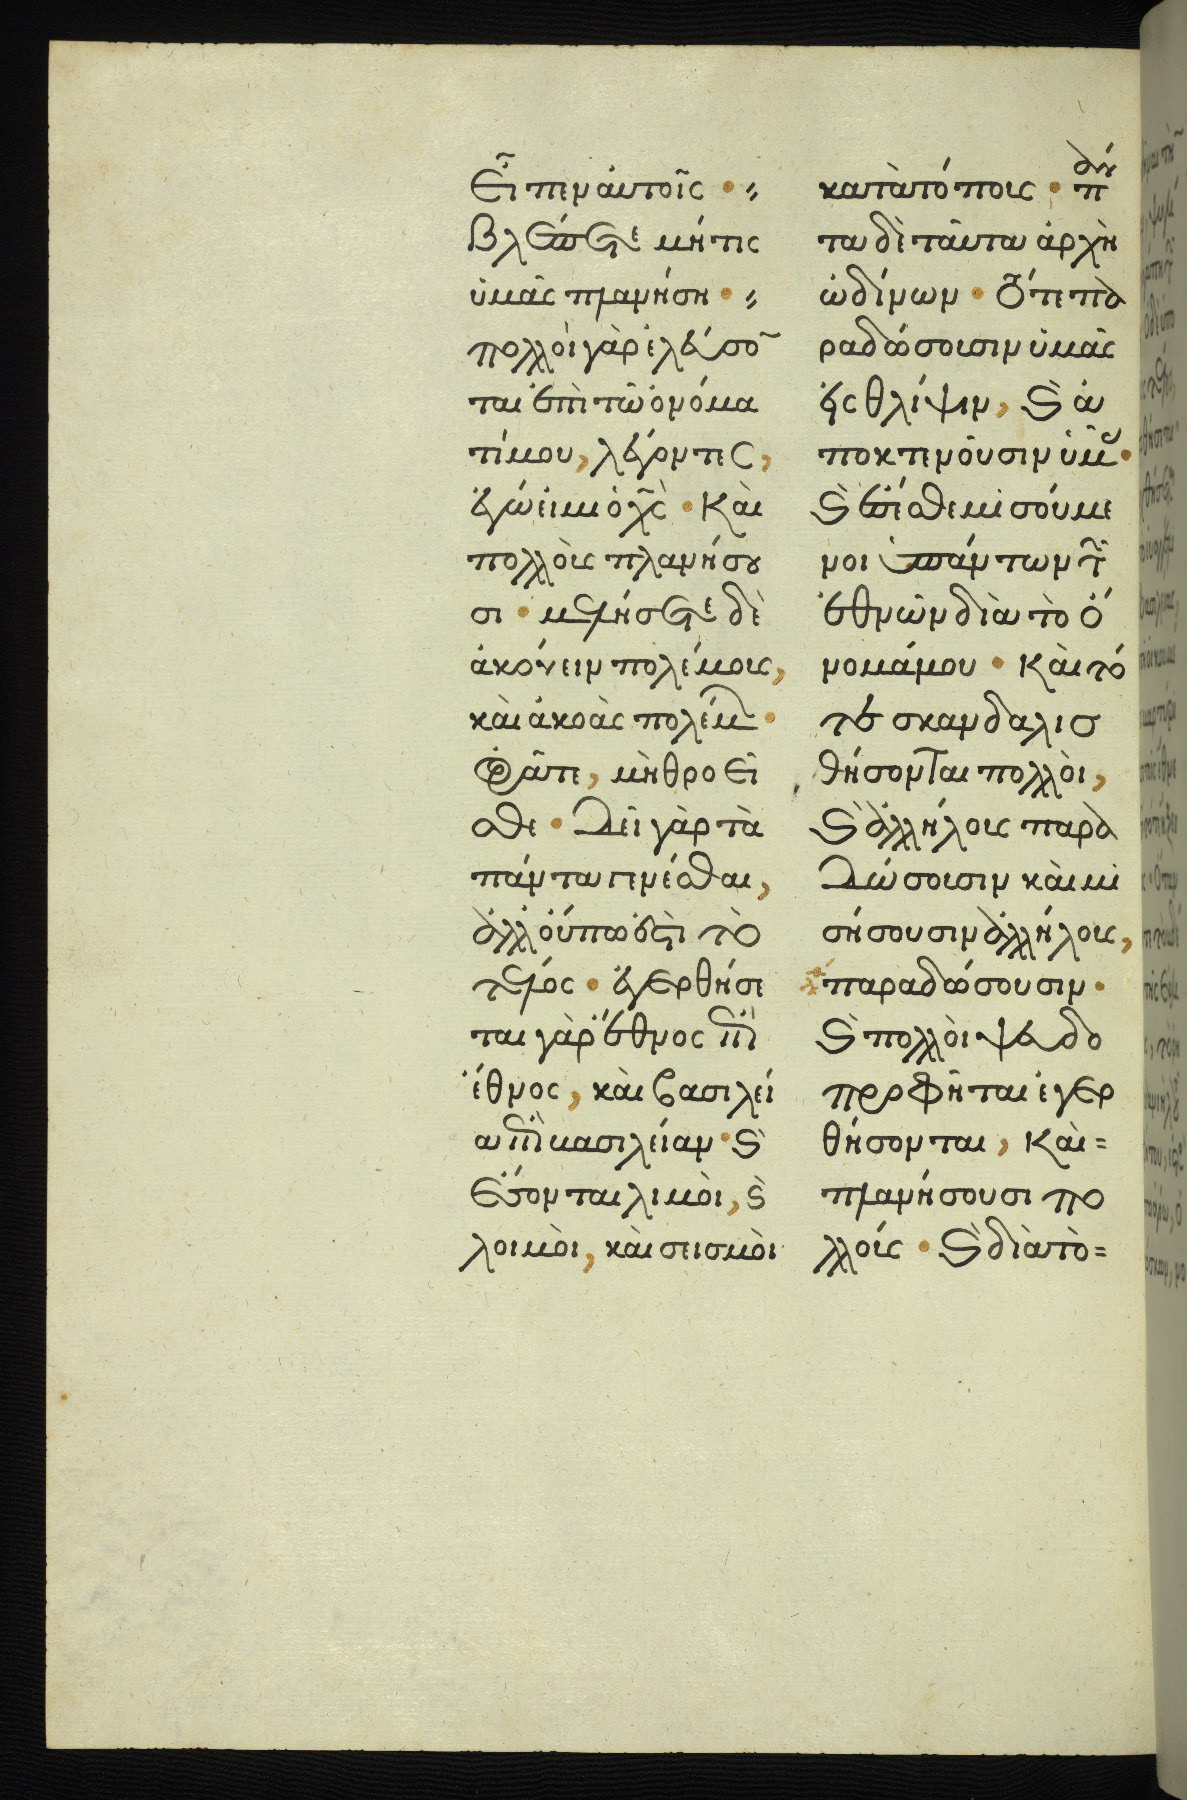 Εἶπεν αὐτοῖς ·
βλέπετε μήτις
ὑμᾶς πλανήση ·
πολλοὶ γὰρ ἐλεύσο
ται ἐπὶ τῶ ὀνόμα
τί μου, λέγοντες,
ἐγώ εἰμι ὁ χς · Καὶ
πολλοὺς πλανήσου
σι · μελήσετε δὲ
ἀκούειν πολέμους,
καὶ ἀκοὰς πολέμ ·
ὁρᾶτε, μὴ θροεῖ
σθε · Δεῖ γὰρ τὰ
πάντα γενέσθαι,
ἀλλ οὔπω ἐστὶ τὸ
τέλος · ἐγερθήσε
ται γὰρ ἔθνος ἐπὶ
ἔθνος, καὶ βασιλεί
α ἐπὶ βασιλείαν · ϗ
ἔσονται λιμοὶ, ϗ
λοιμοὶ, καὶ σεισμοὶ
κατὰ τόπους · π
τα δὲ ταῦτα ἀρχὴ
ὠδίνων · Τότε πα
ραδώσουσιν ὑμᾶς
εἰς θλίψιν, ϗ ἀ
ποκτενοῦσιν ὑμ ·
ϗ ἔσεσθε μισούμε
νοι ὑπὸ πάντων τ
ἐθνῶν διὰ τὸ ὄ
νομά μου · Καὶ τό
τε σκανδαλισ
θήσονται πολλοὶ,
ϗ ἀλλήλους παρα
δώσουσιν καὶ μι
σήσουσιν ἀλλήλους,
παραδώσουσιν ·
ϗ πολλοὶ ψευδο
προφῆται ἐγερ
θήσονται, Καὶ=
πλανήσουσι πο
λλούς · ϗ διὰ τὸ=